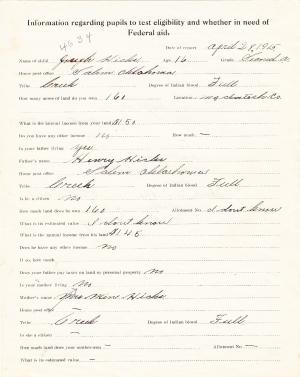 Information regarding pupils to test eligibility and whether in need of
Federal aid.
4634
Date of report April 28, 1915
Name of child Joseph Hicks Age 16 Grade
Home post office Salem Oklahoma
Tribe Creek Degree of Indian blood Full
How many acres of land do you own 160 Location McIntosh Co.
What is the annual income from your land $1.50
Do you have any other income No How much -
Is your father living Yes
Father's name Henry Hicks
Home post office Salem Oklahoma
Tribe Creek Degree of Indian blood Full
Is he a citizen No
How much land does he own 160 Allotment No. I dont know
What is its estimated value I dont know
What is the annual income from his land $1.45
Does he have any other income No
If so, how much
Does your father pay taxes on land or personal property No
Is your mother living No
Mother's name Hicks
Home post office -
Tribe Creek Degree of Indian blood Full
Is she a citizen -
How much land does your mother own - Allotment No. -
What is its estimated value -